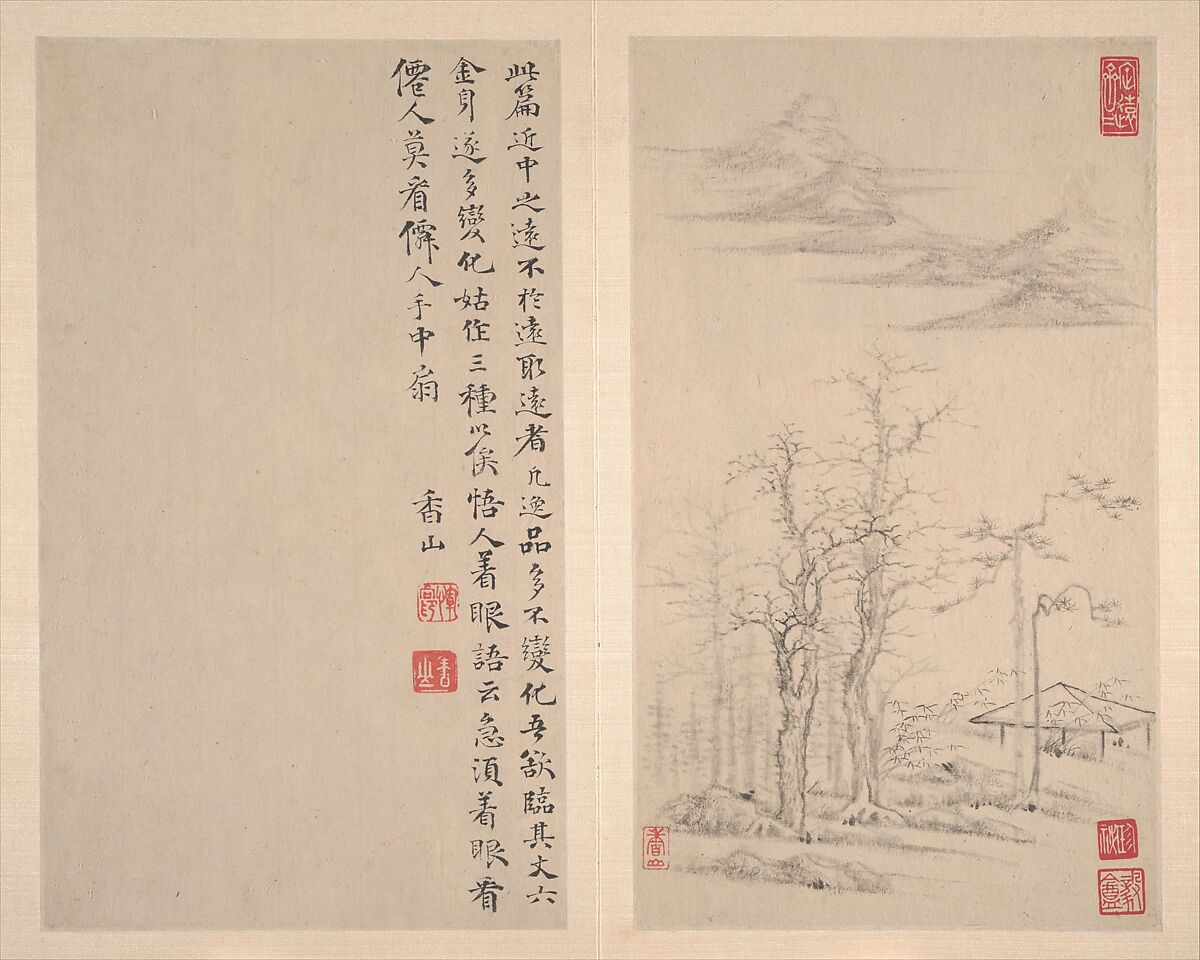 此篇近中之遠不於遠取遠者凡逸品多不變化吾欲臨其丈六
金身遂多變化姑作三種以俟悟人着眼語云急須着眼看
僊人莫看僊人手中扇
香山
香山